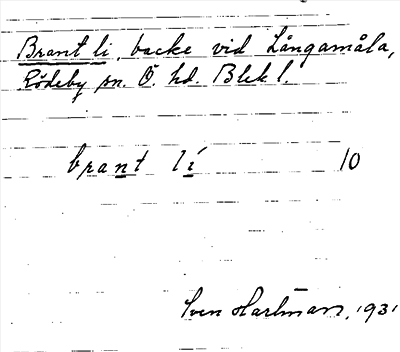 Brant li, backe vid Långamåla,
Rödeby sn. Ö. hd. Blek l.
brant lí 10
Sven Hartman, 1931